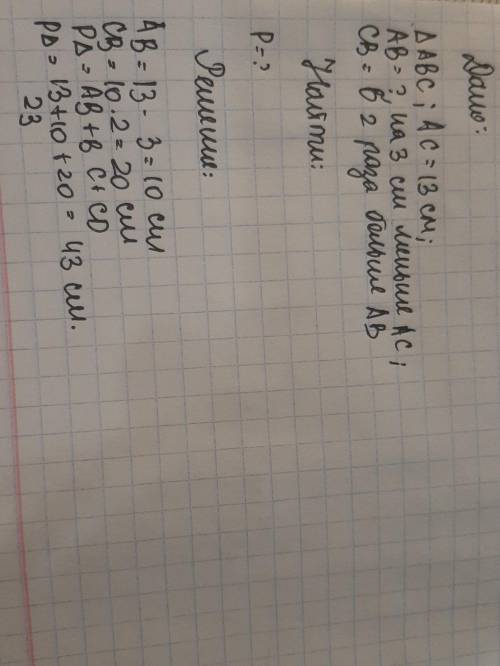 Дано:
Δ ABC ; AC = 13 см;
AB = ? на 3 см меньше AC ;
CB = в 2 раза больше AB
Найти:
P = ?
Решение:
AB = 13 - 3 = 10 см
CB = 10 · 2 = 20 см
PΔ = AB + B C + CD
PΔ = 13 + 10 + 20 = 43 см.
23